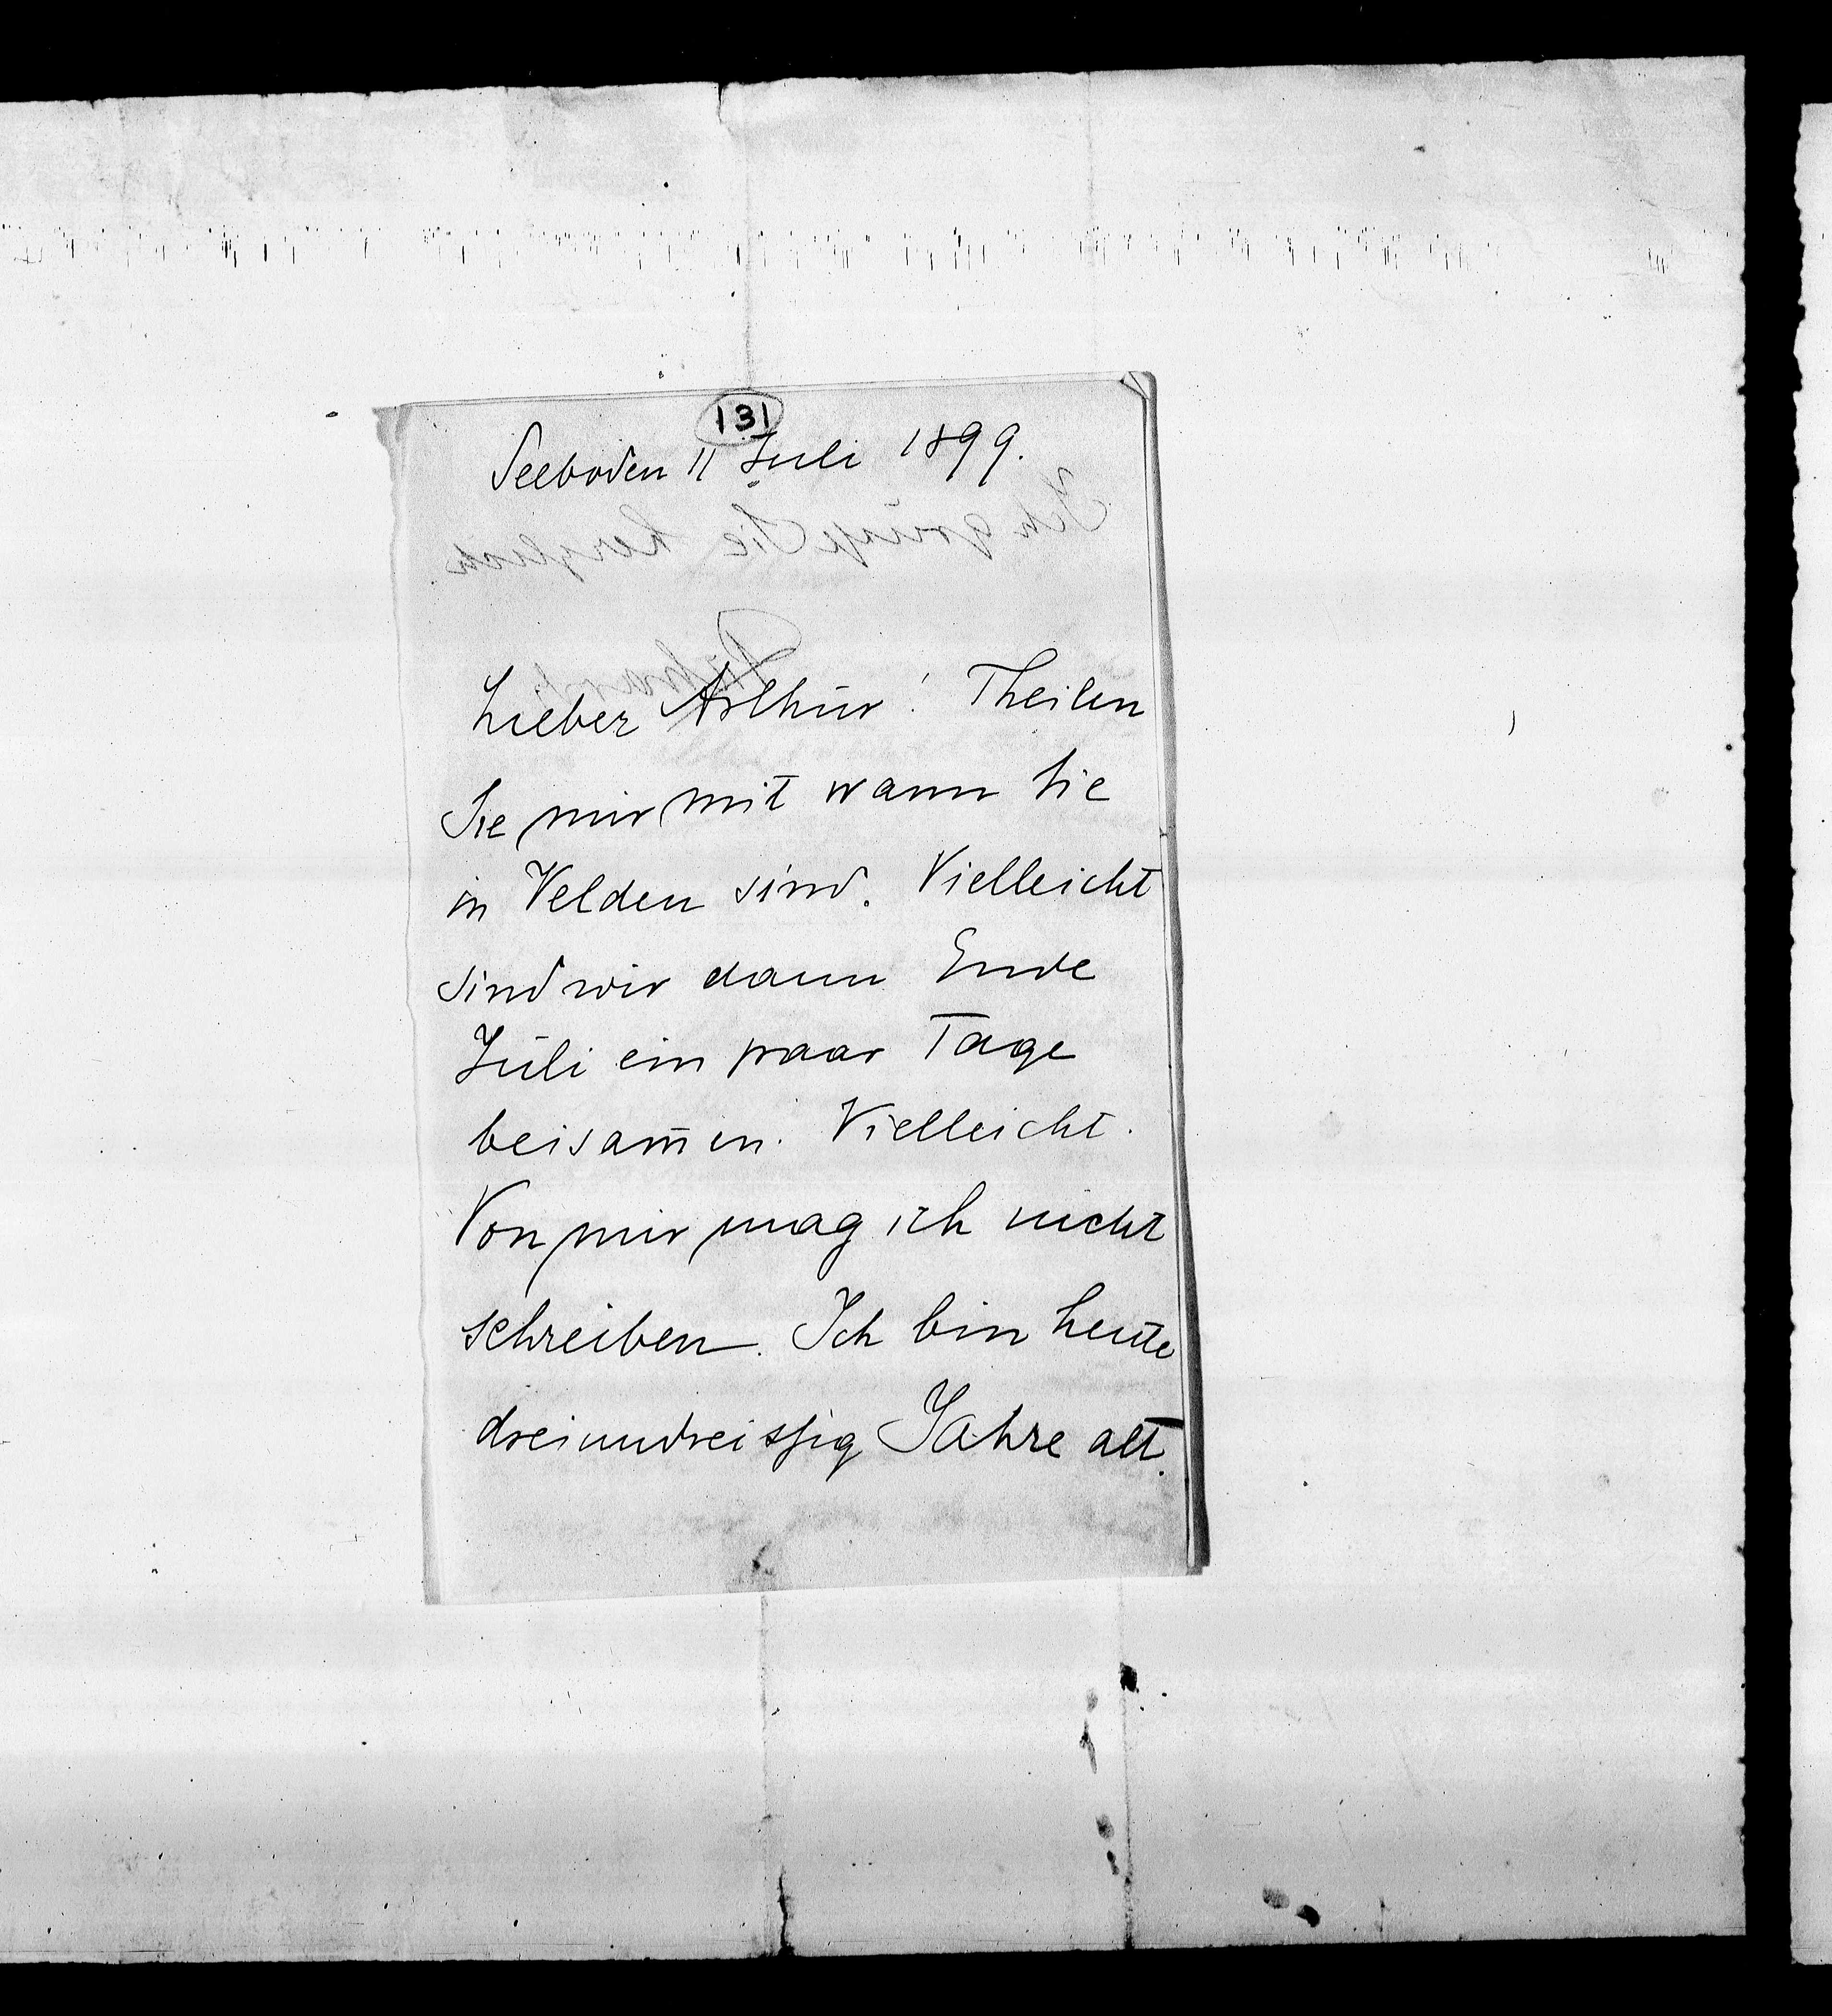 131
Seeboden 11 Juli 1899.
Ich grüße Sie herzlich.
Richard
Lieber Arthur! Theilen
Sie mir mit wann Sie
in Velden sind. Vielleicht
sind wir dann Ende
Juli ein paar Tage
beisam̅en. Vielleicht.
Von mir mag ich nicht
schreiben. Ich bin heute
dreiundreissig Jahre alt.